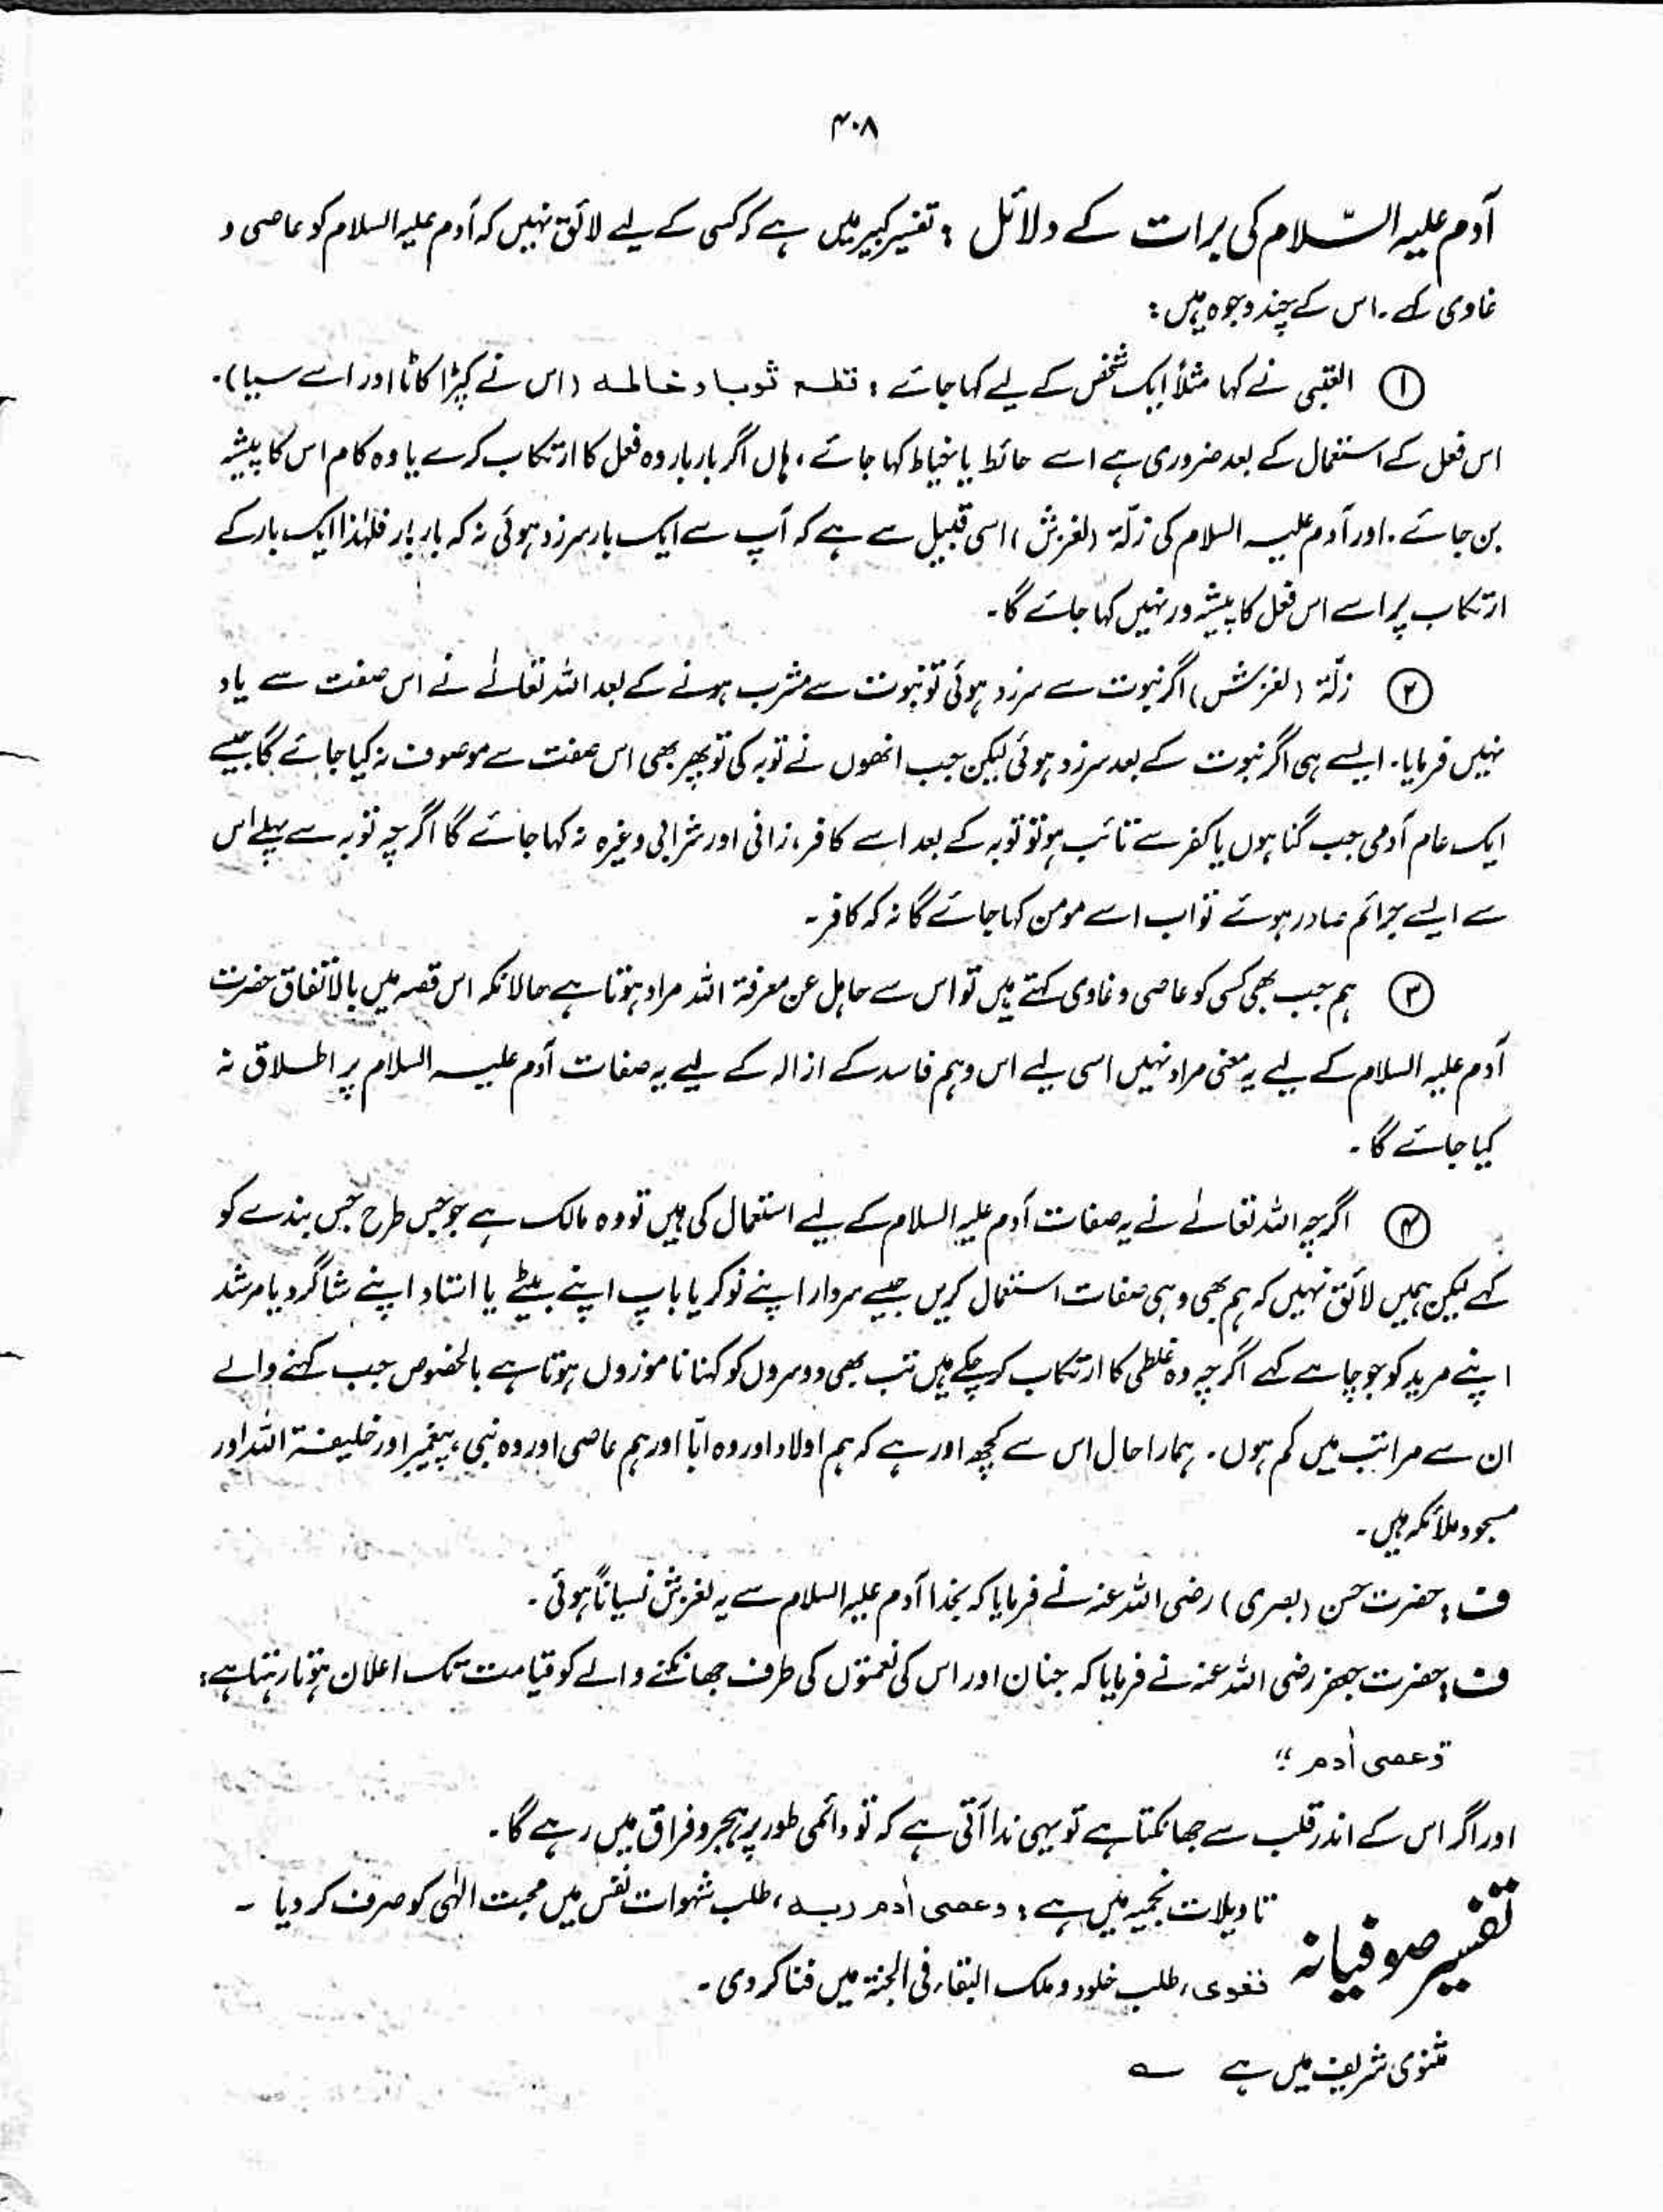 ۴۰۸
آدم علیہ السّلام کی برات کے دلائل : تفسیر کبیر میں ہے کہ کسی کے لیے لائق نہیں کہ آدم علیہ السلام کو عاصی و
غاوی کہے ۔ اس کے چند وجوہ ہیں :
① العقبی نے کہا مثلاً ایک شخص کے لیے کہا جائے : قطـہ ثوبا و خاطہ (اس نے کپڑا کاٹا اور اسے سیا)۔
اس فعل کے استعمال کے بعد ضروری ہے اسے حائط یا خیاط کہا جائے ، ہاں اگر بار بار وہ فعل کا ارتکاب کرے یا وہ کام اس کا پیشہ
بن جائے ۔ اور آدم علیہ السلام کی زلّۃ (لغزش) اسی قبیل سے ہے کہ آپ سے ایک بار سرزد ہوئی نہ کہ بار بار فلہٰذا ایک بار کے
ارتکاب پر اسے اس فعل کا پیشہ ور نہیں کہا جائے گا ۔
② زلّۃ (لغزش) اگر نبوت سے سرزد ہوئی تو نبوت سے مشرب ہونے کے بعد اللہ تعالےٰ نے اس صفت سے یاد
نہیں فرمایا ۔ ایسے ہی اگر نبوت کے بعد سرزد ہوئی لیکن جب انھوں نے توبہ کی تو پھر بھی اس صفت سے موصوف نہ کیا جائے گا جیسے
ایک عام آدمی جب گناہوں یا کفر سے تائب ہو تو توبہ کے بعد اسے کافر ، زانی اور شرابی وغیرہ نہ کہا جائے گا اگرچہ توبہ سے پہلے اس
سے ایسے جرائم صادر ہوئے تو اب اسے مومن کہا جائے گا نہ کہ کافر ۔
③ ہم جب بھی کسی کو عاصی و غاوی کہتے ہیں تو اس سے جاہل عن معرفۃ اللہ مراد ہوتا ہے حالانکہ اس قصہ میں بالاتفاق حضرت
آدم علیہ السلام کے لیے یہ معنی مراد نہیں اسی لیے اس وہم فاسد کے ازالہ کے لیے یہ صفات آدم علیہ السلام پر اطلاق نہ
کیا جائے گا ۔
④ اگرچہ اللہ تعالےٰ نے یہ صفات آدم علیہ السلام کے لیے استعمال کی ہیں تو وہ مالک ہے جو جس طرح جس بندے کو
کہے لیکن ہمیں لائق نہیں کہ ہم بھی وہی صفات استعمال کریں جیسے سردار اپنے نوکر یا باپ اپنے بیٹے یا استاد اپنے شاگرد یا مرشد
اپنے مرید کو جو چاہے کہے اگرچہ وہ غلطی کا ارتکاب کر چکے ہیں تب بھی دوسروں کو کہنا ناموزوں ہوتا ہے بالخصوص جب کہنے والے
ان سے مراتب میں کم ہوں ۔ ہمارا حال اس سے کچھ اور ہے کہ ہم اولاد اور وہ ابّا اور ہم عاصی اور وہ نبی ، پیغمبر اور خلیفۃ اللہ اور
مسجود ملائکہ ہیں ۔
ف : حضرت حسن (بصری) رضی اللہ عنہ نے فرمایا کہ بخدا آدم علیہ السلام سے یہ لغزش نسیاناً ہوئی ۔
ف : حضرت جعفر رضی اللہ عنہ نے فرمایا کہ جنان اور اس کی نعمتوں کی طرف جھانکنے والے کو قیامت تک اعلان ہوتا رہتا ہے :
"وعصی اٰدم"
اور اگر اس کے اندر قلب سے جھانکتا ہے تو یہی ندا آتی ہے کہ تو دائمی طور پر ہجر و فراق میں رہے گا ۔
تفسیر صوفیانہ تاویلات نجمیہ میں ہے : وعصی اٰدم ربہ ، طلب شہوات نفس میں محبت الٰہی کو صرف کر دیا ۔
فغوی ، طلب خلود و ملک البقاء فی الجنۃ میں فنا کر دی ۔
مثنوی شریف میں ہے ؎